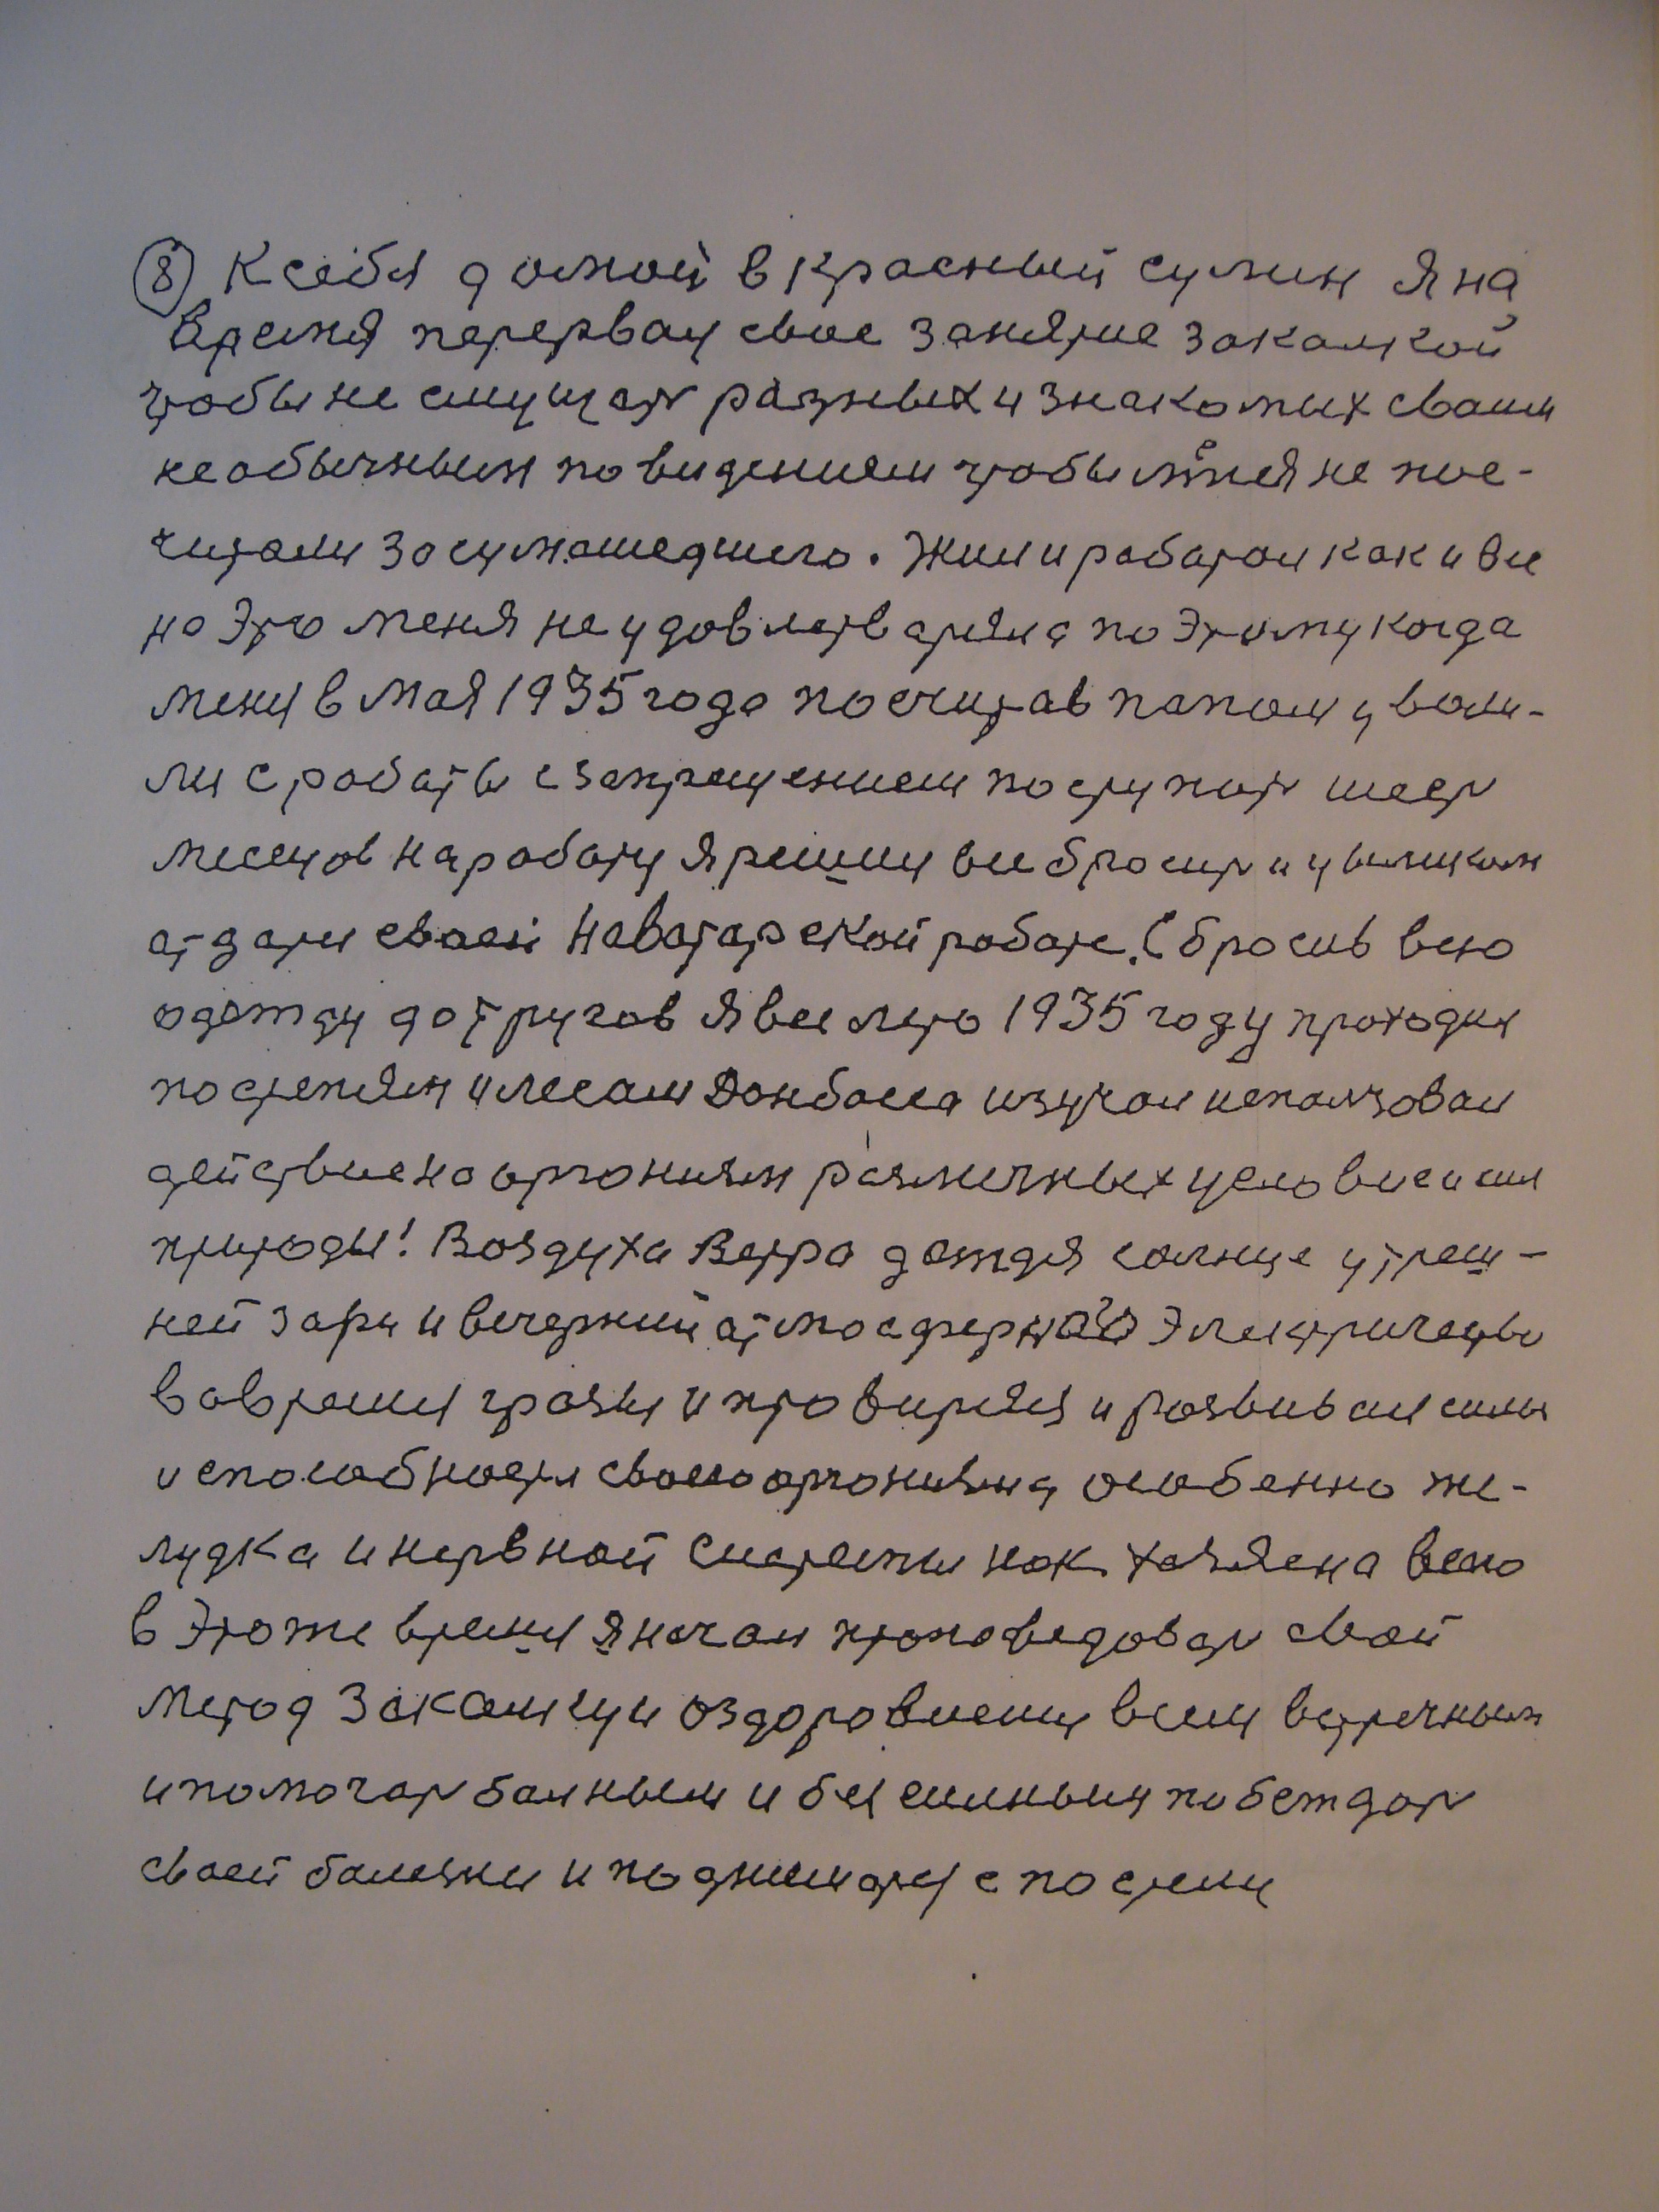 ⑧ К себя домой в Красный сулин Я на
время перервал свое занятие закалкой
чтобы не смущат разных и знакомых сваим
необычным повидением чтобы меня не пос-
читали за сумашедшего. Жил и работал как и все
но Это меня не удовлетваряла по Этому когда
меня в Мая 1935 года посчитав папом ували-
ли с работы с запрещением поступат шест
месецов на работу Я решил все бросит и целиком
атдатся сваей Наватарской работе. Сбросив всю
одежду до тругов Я все лето 1935 году проходил
по степям и лесам Донбасса изучал использовал
действие на организм различных условие и сил
природы! Воздуха Ветра дождя солнце утреш-
ней зари и вечерний атмосферной Электричество
вовремя грозы и провирял и развивал силы
и способности своего организма особенно же-
лудка и нервной системы как хозяена всего
в Этоже время Я начал проповедоват свой
метод Закалки и оздоровлению всем встречным
и помогат балным и бессильным побеждат
сваей балезни и подниматся с постели